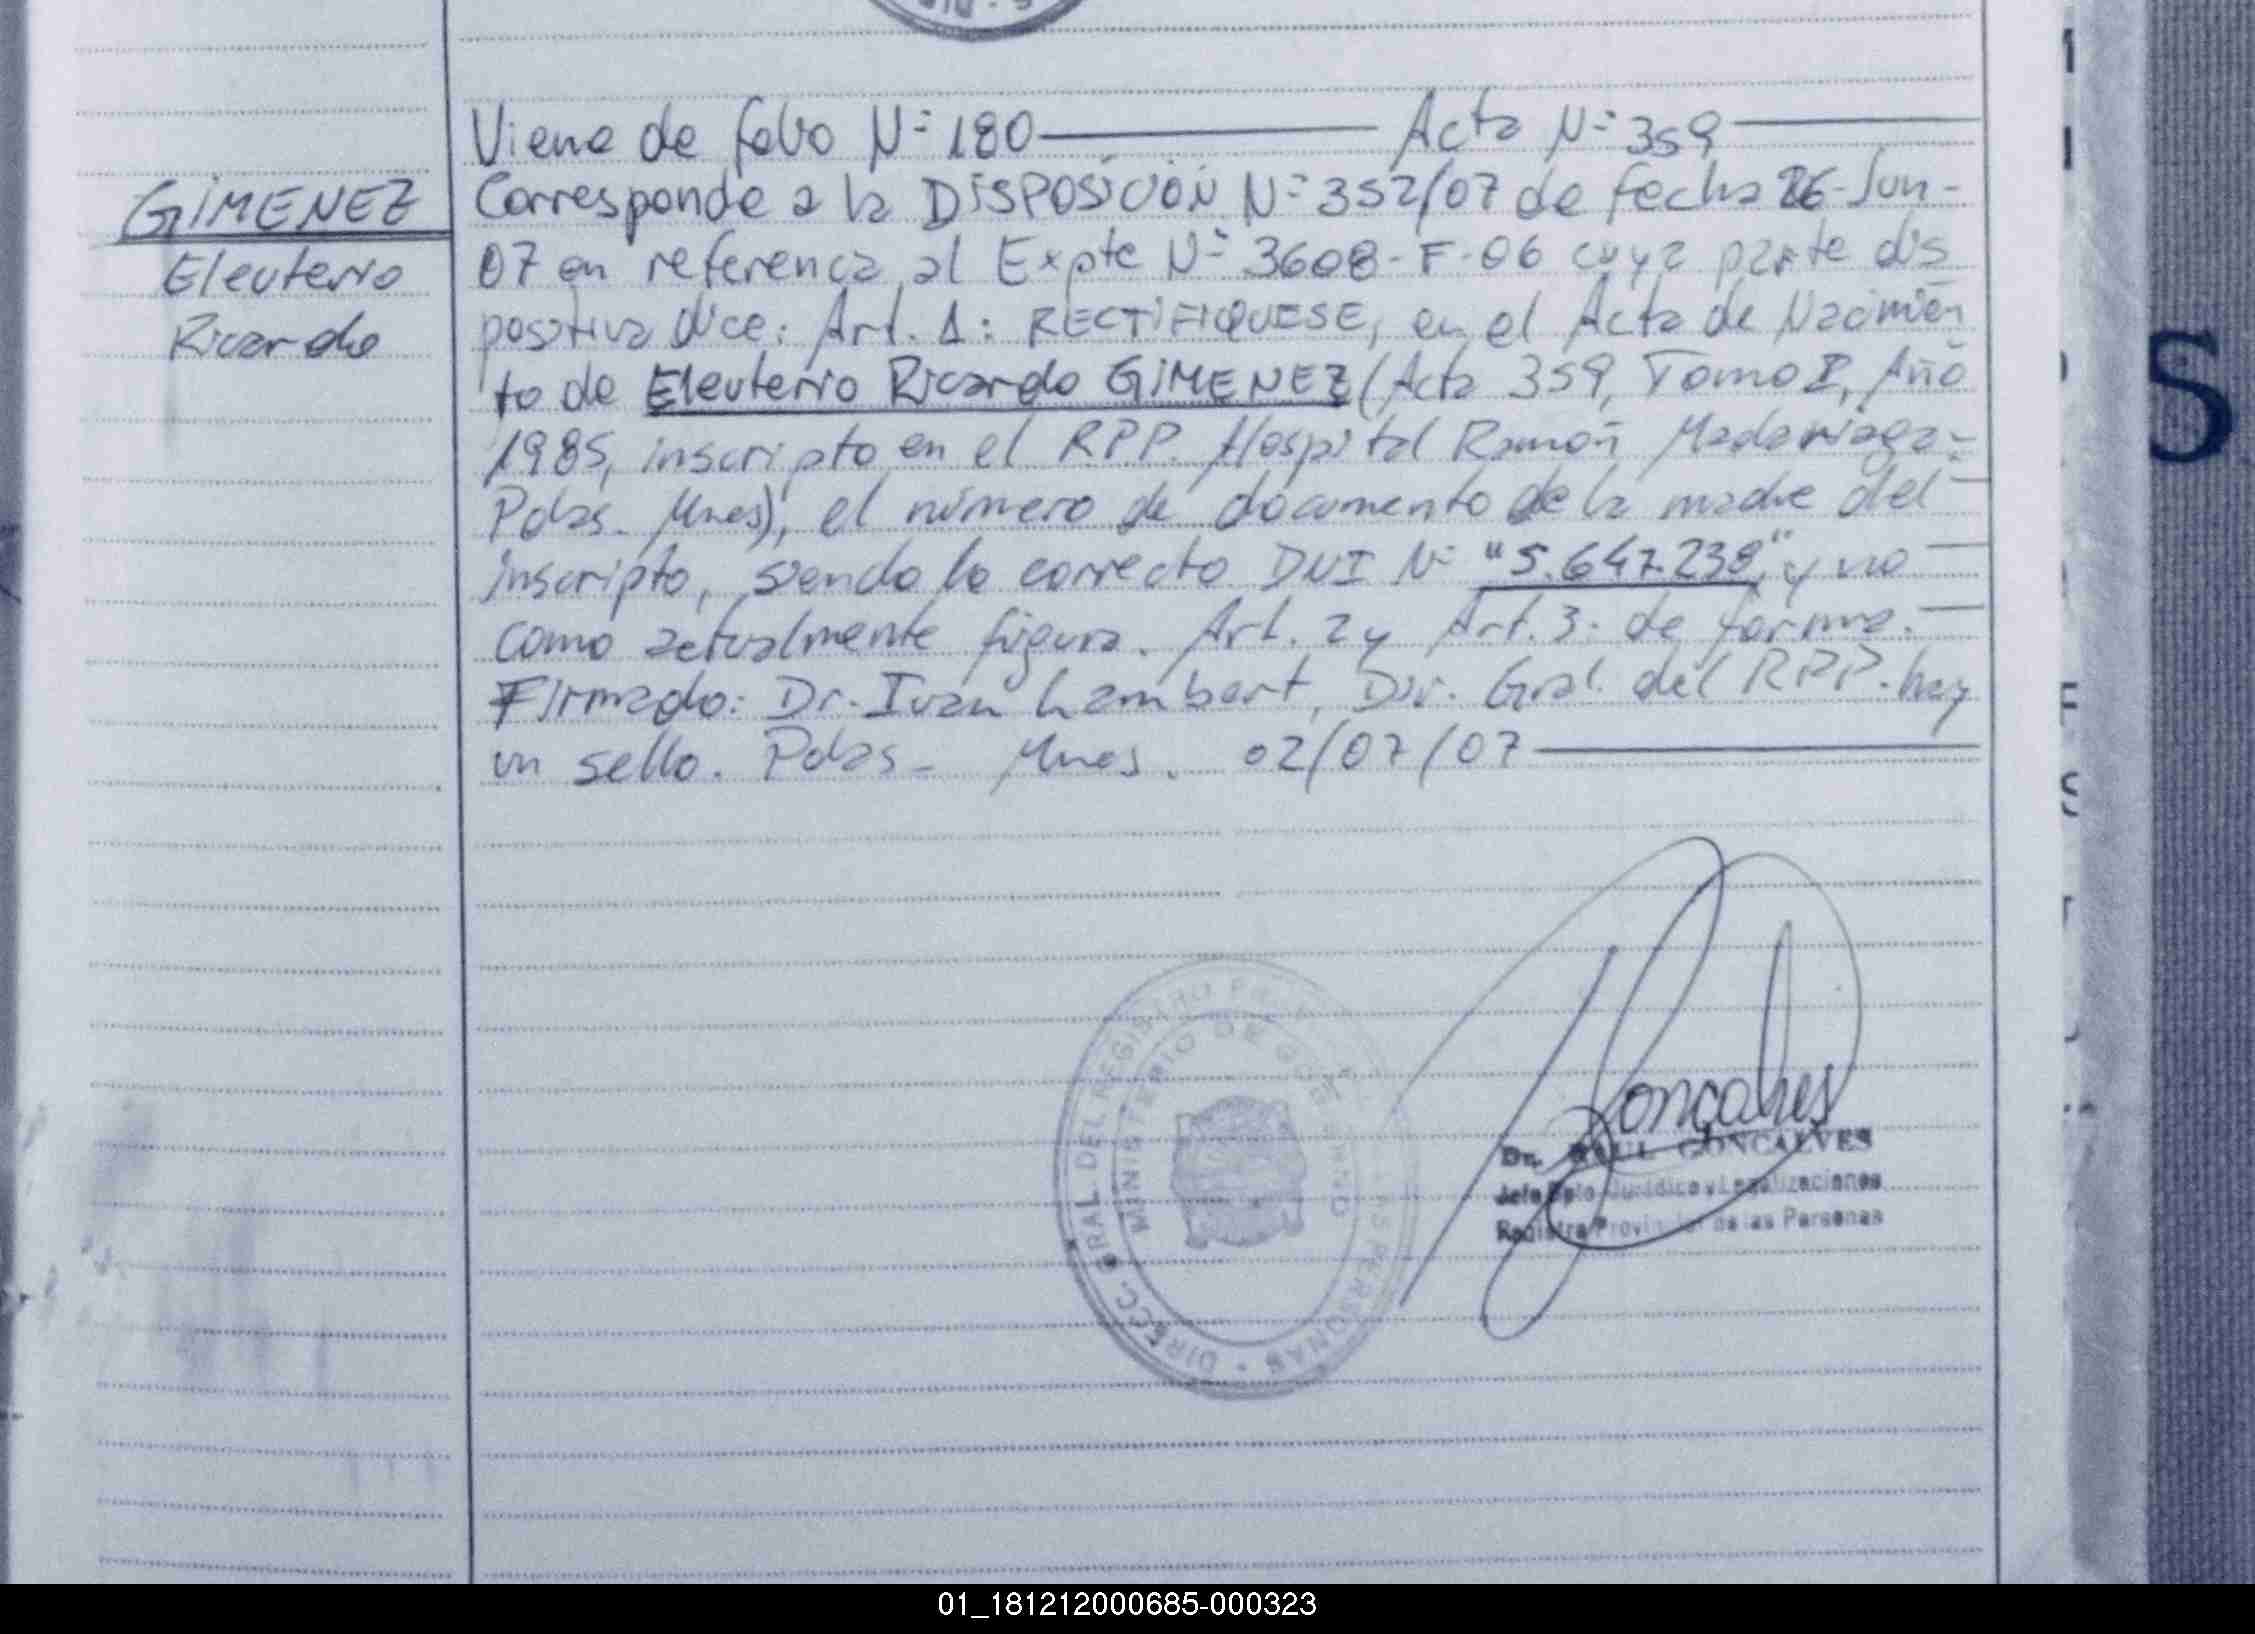 Viene de folio N= 180 Acta N= 359
GIMENEZ
Eleuterio
Ricardo
Corresponde a la DISPOSICIÓN N= 352/07 de fecha 26-Jun-
07 en referencia al Expte N= 3608-F-06 cuya parte dis
positiva dice: Art. 1: RECTIFIQUESE, en el Acta de Nacimien
to de Eleuterio Ricardo GIMENEZ (Acta 359, Tomo I, Año
1985, inscripto en el RPP. Hospital Ramón Madariaga-
Pdas- Mnes), el número de documento de la madre del
inscripto, siendo lo correcto DNI N= "5.647.238", y no
como actualmente figura. Art. 2 y Art. 3: de forma.
Firmado: Dr. Ivan Lambert, Dir. Gral. del RPP. hay
un sello. Pdas- Mnes. 02/07/07
DIRECC. GRAL. DEL REGISTRO PERSONAS
MINISTERIO DE GOBIERNO
Goncalves
Dr. RAUL GONCALVES
Jefe Dpto. Jurídico y Legalizaciones
Registro Provincial de las Personas
S
01_181212000685-000323